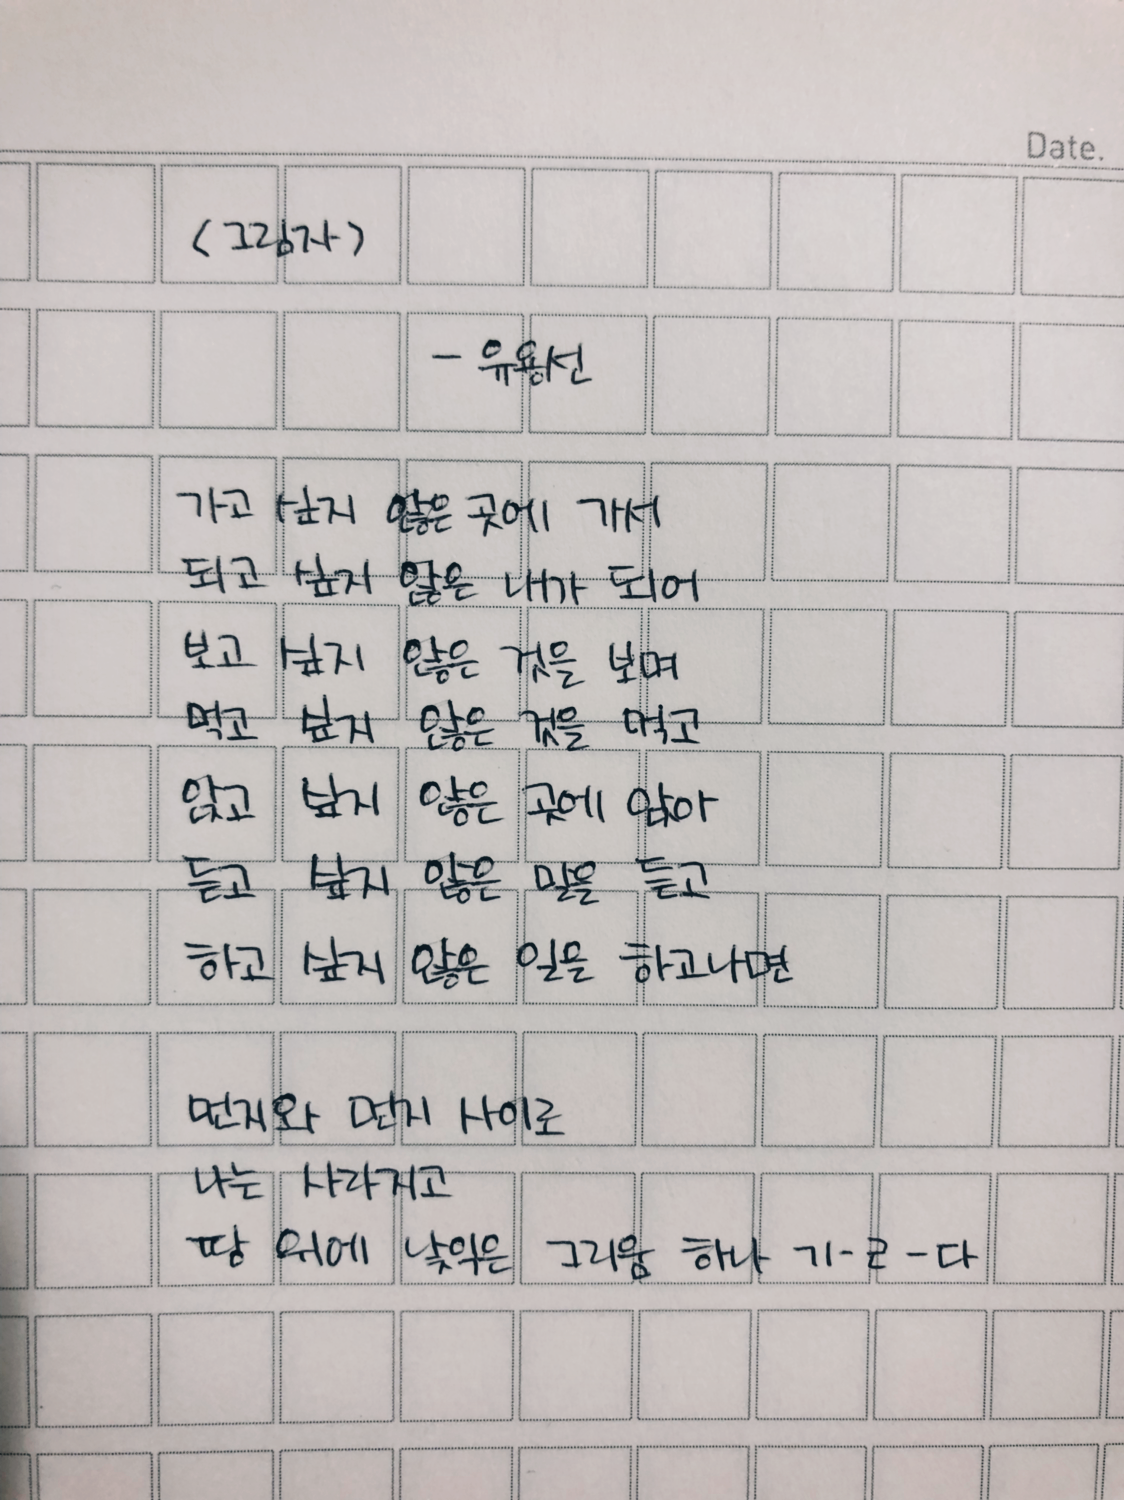 Date.
<그림자>
- 유용선
가고 싶지 않은 곳에 가서
되고 싶지 않은 내가 되어
보고 싶지 않은 것을 보며
먹고 싶지 않은 것을 먹고
앉고 싶지 않은 곳에 앉아
듣고 싶지 않은 말을 듣고
하고 싶지 않은 일을 하고나면
먼지와 먼지 사이로
나는 사라지고
땅 위에 낯익은 그리움 하나 기-르-다